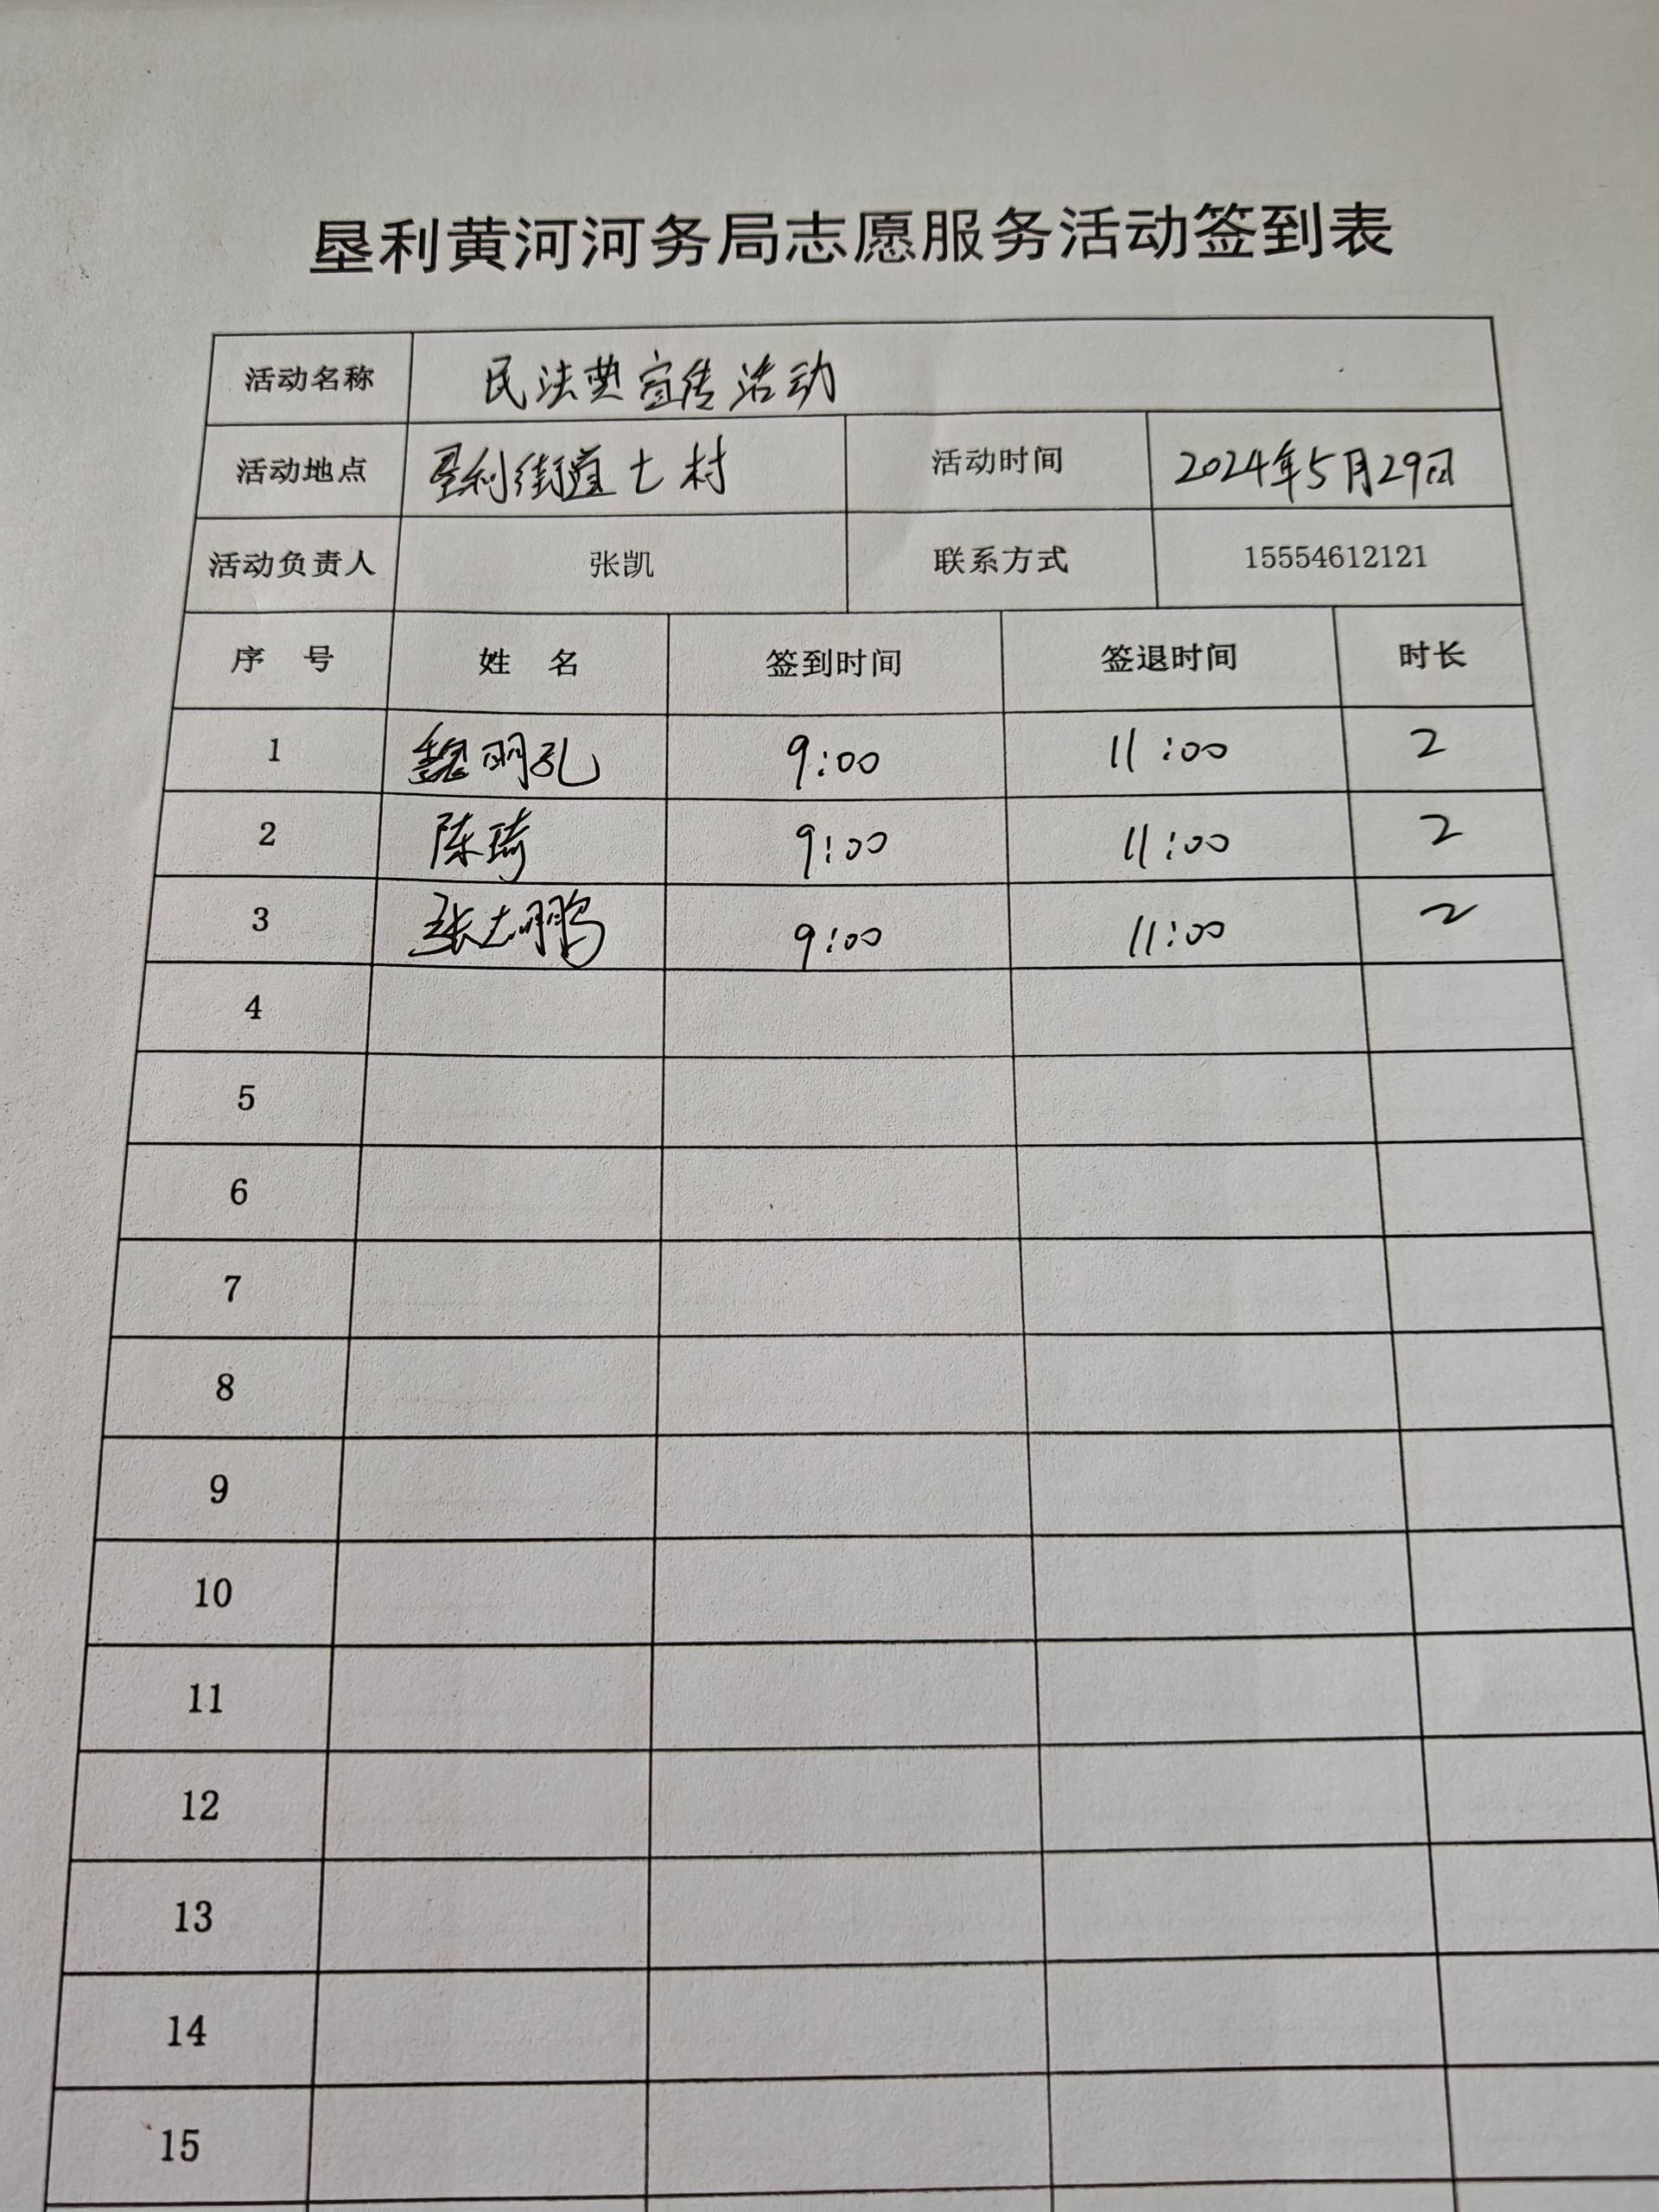 垦利黄河河务局志愿服务活动签到表
活动名称 民法典宣传活动
活动地点 垦利街道七村 活动时间 2024年5月29日
活动负责人 张凯 联系方式 15554612121
序 号 姓 名 签到时间 签退时间 时长
1 魏明孔 9:00 11:00 2
2 陈琦 9:00 11:00 2
3 张志鹏 9:00 11:00 2
4
5
6
7
8
9
10
11
12
13
14
15